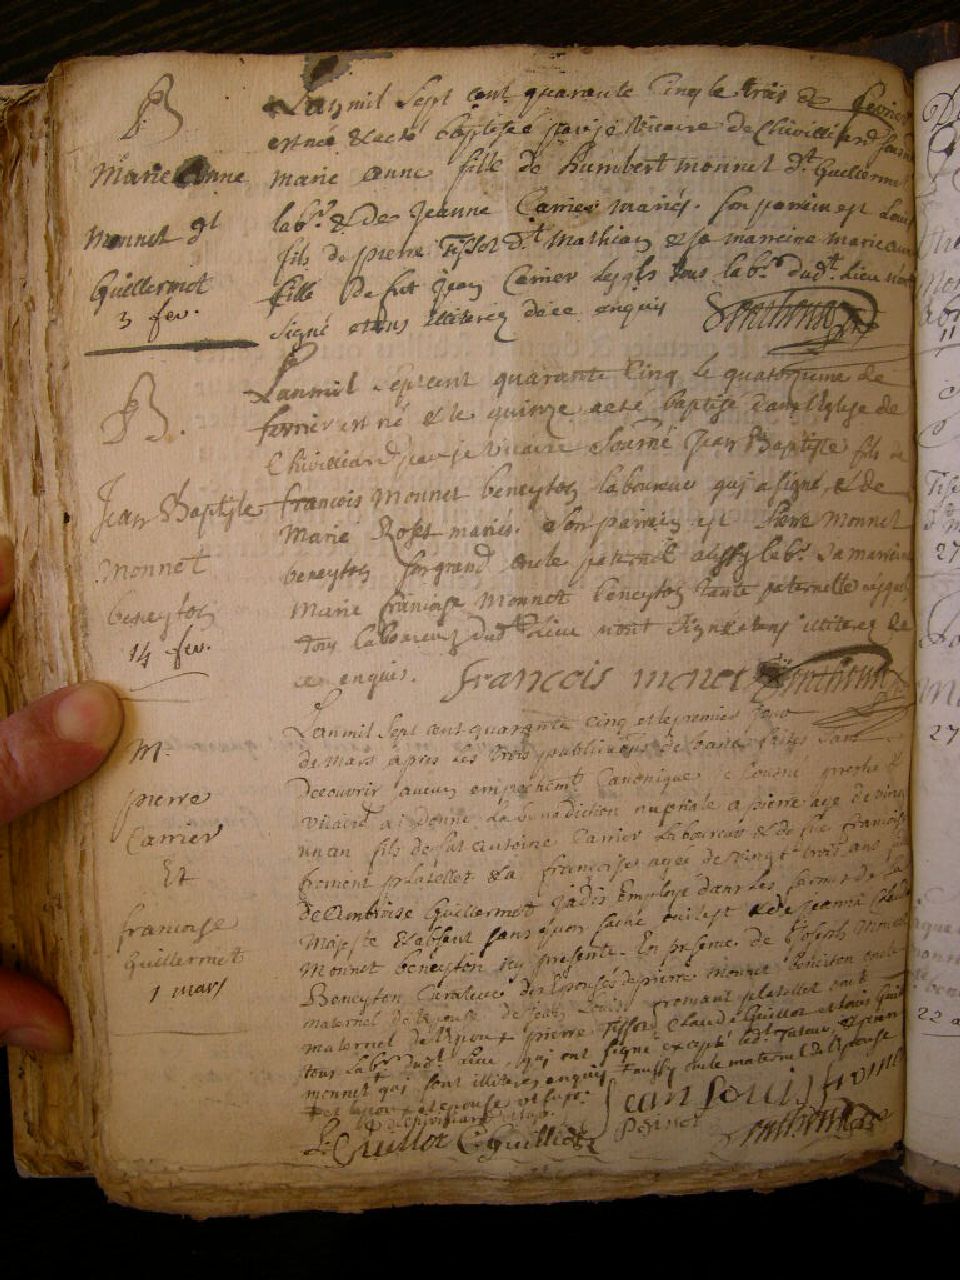 B
Marie Anne
Monnet dt
Guillermot
3 fev.
Lan mil Sept cent quarante Cinq le trois de fevrier
est née & a esté baptisée par je vicaire de Chivilliard
marie anne fille de humbert monnet dt Guillermet
labr & de Jeanne Carrier mariés. son parrein est Louis
fils de pierre Tissot dt Mathian & sa marreine marie
fille de fut Jean Carrier tous labr dudt Lieu
signé etans illiteréz de ce enquis
B.
Jean Baptiste
Monnet
beneyton
14 fev.
Lan mil Sept cent quarante Cinq le quatorzieme de
fevrier est né & le quinze a eté baptisé dans l'eglise de
Chivilliard par je vicaire Soubné Jean Baptiste fils de
francois Monnet beneyton laboureur qui a signé, & de
Marie Roset mariés. Son parrein est Pierre Monnet
beneyton son grand oncle paternel aussy labr. Sa marreine
Marie francoise Monnet beneyton tante paternelle
tous laboureurs dudt lieu n'ont signé etans illiterez de
ce enquis. francois monet
M
pierre
Carrier
Et
francoise
Guillermet
1 mars
Lan mil Sept cent quarante Cinq et le premier jour
de mars après les trois publications de bans faites sans
decouvrir aucun empechemt Canonique je Soubné prestre &
vicaire ai donné la benediction nuptiale a pierre agé de vingt
un an fils de fut Antoine Carrier Laboureur & de fue francoise
froment platellet & a francoise agée de vingt trois ans fille
de Ambroise Guillermet jadis Employé dans les fermes de Sa
Majeste & absent sans qu'on sache ou il est & de jeanne Claude
Monnet beneyton icy presente. En presence de Joseph Monnet
Beneyton Curateur des Epouses de pierre Monnet beneiton oncle
maternel de l'epouse de Jean Louis fromant platellet
maternel de l'epoux pierre Tissot, Claude Guillot et Louis
tous labrs dudt lieu, qui ont signé excepté led. Tuteur, & pierre
monnet qui sont illiteres enquis & aussy oncle maternel de l'epouse
et l'epoux & l'epouse ut supr.
Jean louis frome
L Guillot C Guilliot